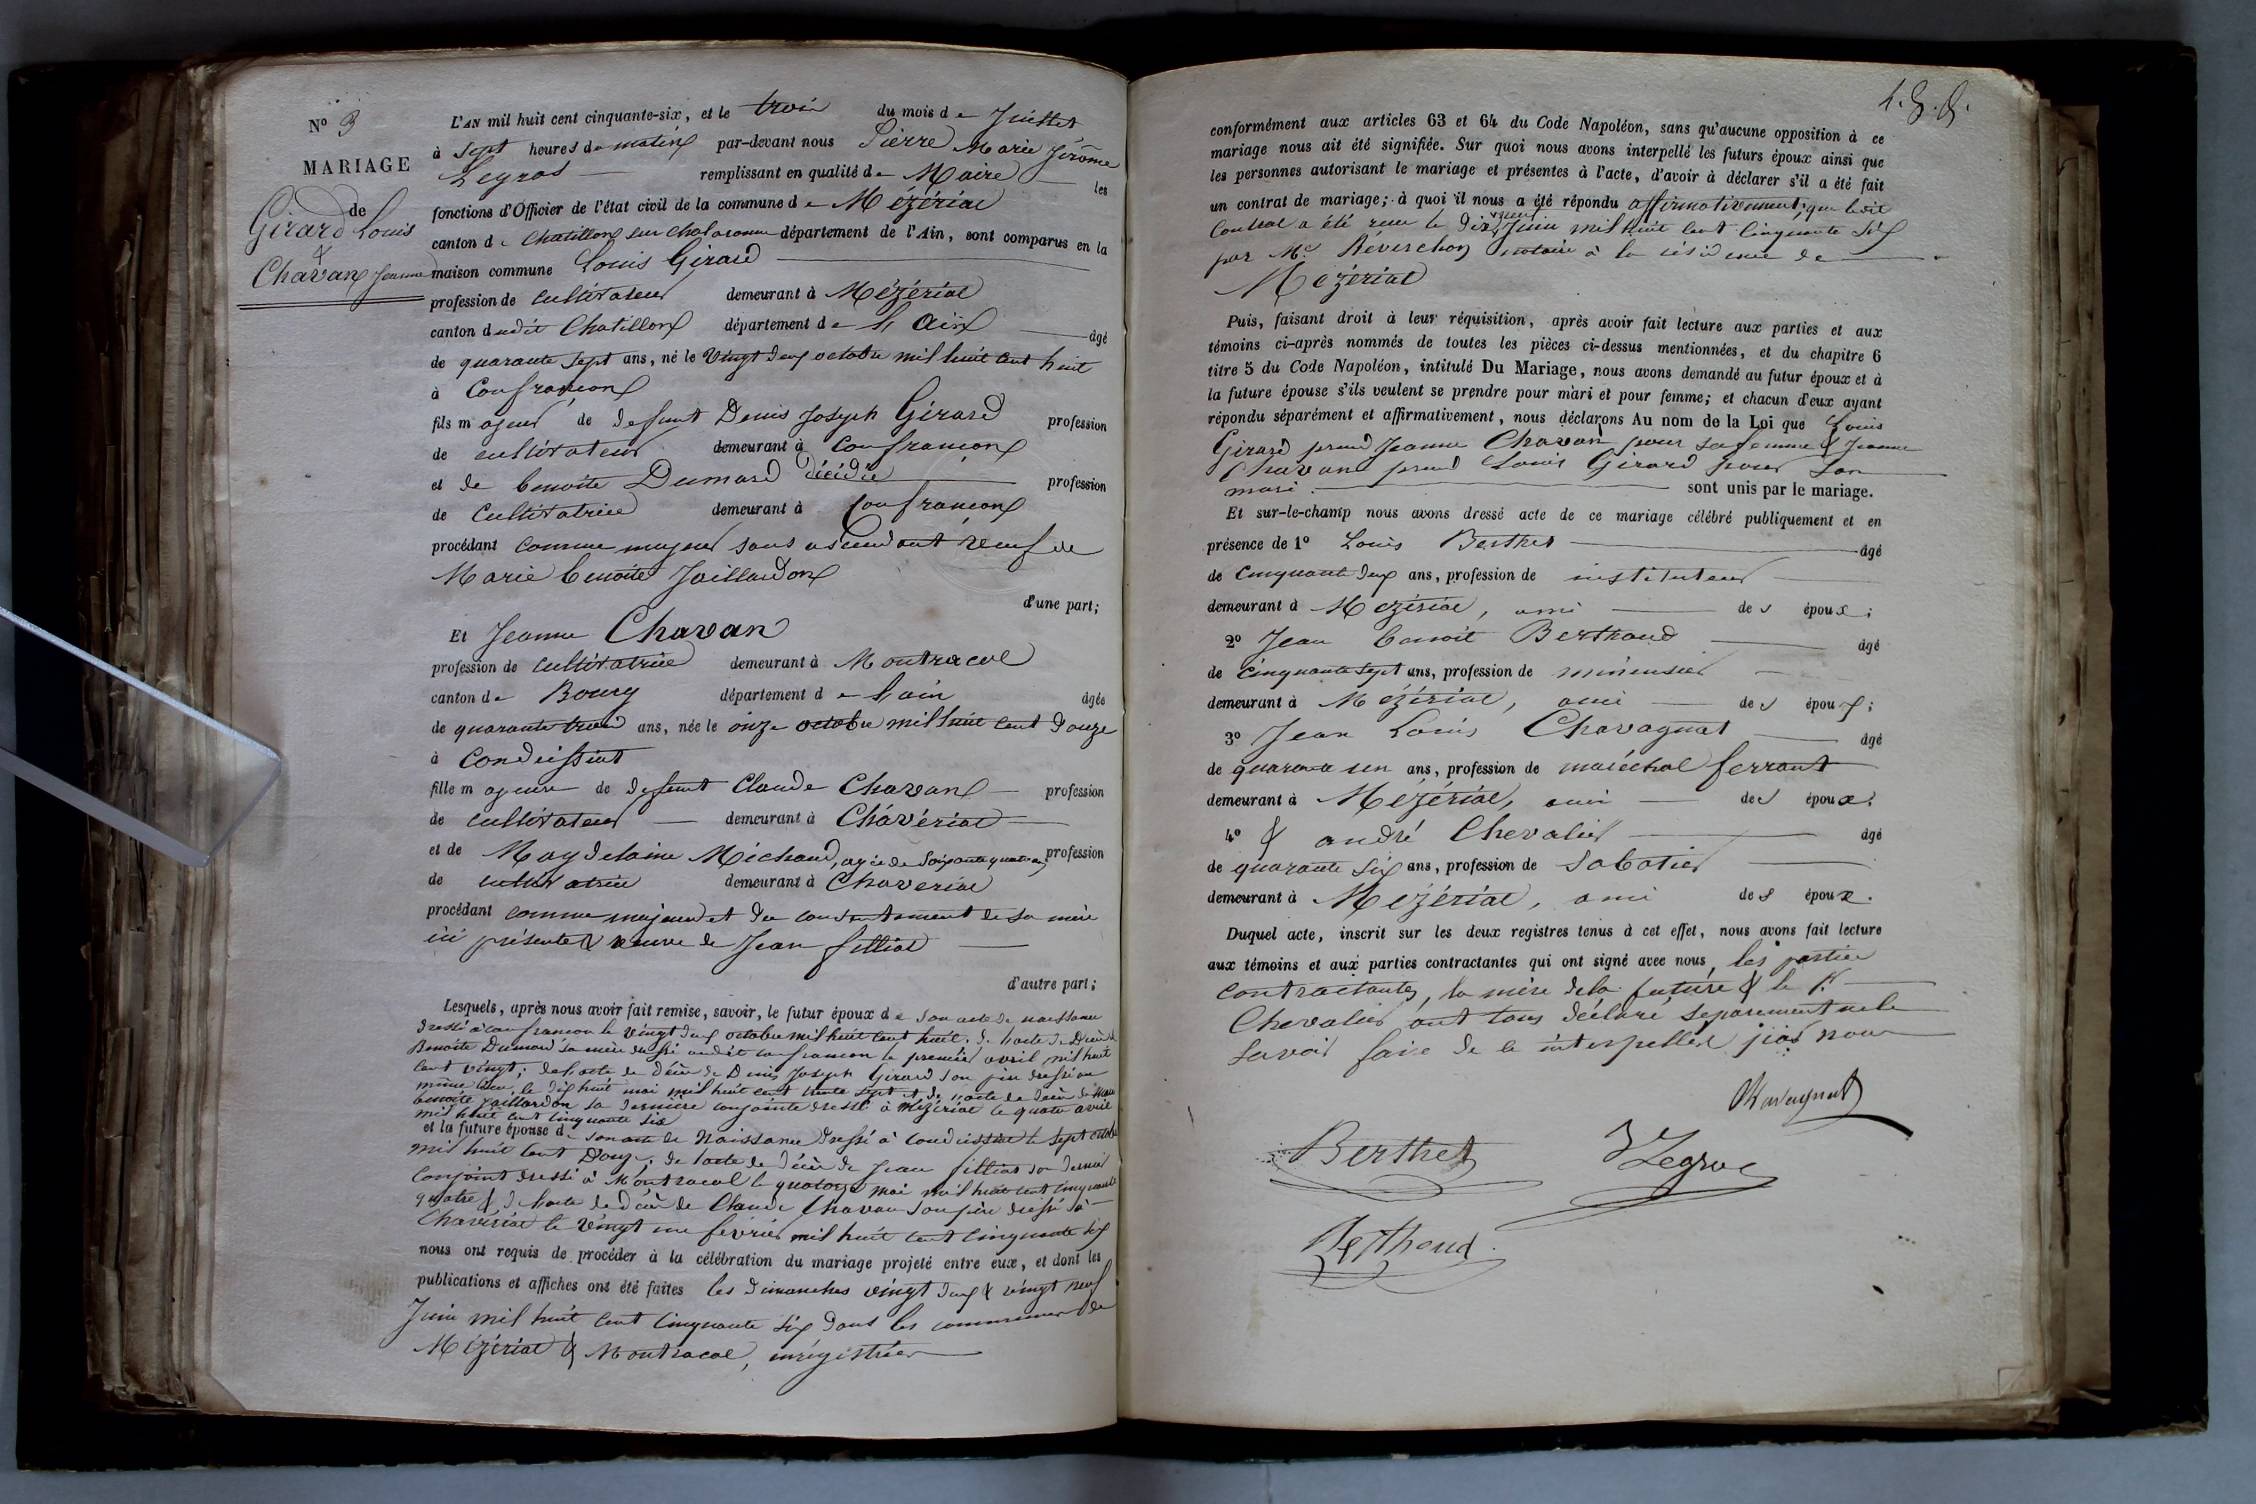 N° 3
MARIAGE
de
Girard Louis
&
Chavan Jeanne
L'AN mil huit cent cinquante-six, et le trois du mois de Juillet
à sept heures du matin par-devant nous Pierre Marie Jérôme
Legras remplissant en qualité de Maire les
fonctions d'Officier de l'état civil de la commune de Mézériat
canton de Chatillon sur Chalaronne département de l'Ain, sont comparus en la
maison commune Louis Girard
profession de cultivateur demeurant à Mézériat
canton dudit Chatillon département de l'Ain âgé
de quarante sept ans, né le vingt deux octobre mil huit cent huit
à Confrançon
fils majeur de defunt Denis Joseph Girard profession
de cultivateur demeurant à Confrançon
et de Benoite Dumard décédée profession
de Cultivatrice demeurant à Confrançon
procédant comme majeur sans ascendant veuf de
Marie Benoite Jaillardon
d'une part;
Et Jeanne Chavan
profession de cultivatrice demeurant à Montracol
canton de Bourg département de l'ain âgée
de quarante trois ans, née le onze octobre mil huit cent douze
à Condeissiat
fille majeure de defunt Claude Chavan profession
de cultivateur demeurant à Chavériat
et de Magdelaine Michaud, agée de soixante quatre ans profession
de cultivatrice demeurant à Chaveriat
procédant comme majeure et du consentement de sa mère
ici présente & veuve de Jean filliat
d'autre part;
Lesquels, après nous avoir fait remise, savoir, le futur époux de son acte de naissance
dressé à confrancon le vingt deux octobre mil huit cent huit, de l'acte de Décès de
Benoite Dumard sa mère dressé audit confrancon le premier avril mil huit
cent vingt; de l'acte de décès de Denis Joseph Girard son père dressé au
même lieu, le dix huit mai mil huit cent trente sept & de l'acte de décès de Marie
benoite Jaillardon sa dernière conjointe dressé à Mézériat le quatre avril
mil huit cent cinquante six
et la future épouse de son acte de Naissance dressé à Condeissiat le sept octobre
mil huit cent Douze, de l'acte de décès de Jean filliat son dernier
conjoint dressé à Montracol le quatorze mai mil huit cent cinquante
quatre & de l'acte de décès de Claude Chavan son père dressé à
Chavériat le vingt un février mil huit cent cinquante six
nous ont requis de procéder à la célébration du mariage projeté entre eux, et dont les
publications et affiches ont été faites les dimanches vingt deux & vingt neuf
Juin mil huit cent cinquante six dans les communes de
Mézériat & Montracol, enrégistrées
conformément aux articles 63 et 64 du Code Napoléon, sans qu'aucune opposition à ce
mariage nous ait été signifiée. Sur quoi nous avons interpellé les futurs époux ainsi que
les personnes autorisant le mariage et présentes à l'acte, d'avoir à déclarer s'il a été fait
un contrat de mariage; à quoi il nous a été répondu affirmativement; que ledit
Contrat a été reçu le dix neuf Juin mil huit cent cinquante six
par Me Réverchon notaire à la résidence de
Mézériat
Puis, faisant droit à leur réquisition, après avoir fait lecture aux parties et aux
témoins ci-après nommés de toutes les pièces ci-dessus mentionnées, et du chapitre 6
titre 5 du Code Napoléon, intitulé Du Mariage, nous avons demandé au futur époux et à
la future épouse s'ils veulent se prendre pour mari et pour femme; et chacun d'eux ayant
répondu séparément et affirmativement, nous déclarons Au nom de la Loi que Louis
Girard prend Jeanne Chavan pour sa femme & Jeanne
Chavan prend Louis Girard pour son
mari. sont unis par le mariage.
Et sur-le-champ nous avons dressé acte de ce mariage célébré publiquement et en
présence de 1° Louis Berthet âgé
de cinquante deux ans, profession de instituteur
demeurant à Mézériat, ami des époux;
2° Jean Benoit Berthoud âgé
de cinquante sept ans, profession de menuisier
demeurant à Mézériat, ami des époux;
3° Jean Louis Chavagnat âgé
de quarante un ans, profession de maréchal ferrant
demeurant à Mézériat, ami des époux;
4° & andré Chevalier âgé
de quarante six ans, profession de sabotier
demeurant à Mézériat, ami des époux.
Duquel acte, inscrit sur les deux registres tenus à cet effet, nous avons fait lecture
aux témoins et aux parties contractantes qui ont signé avec nous, les parties
contractantes, la mère de la future & le Sr
Chevalier ont tous déclaré séparement ne le
savoir faire de ce interpellés par nous
Chavagnat
Berthet
J Legras
Berthoud